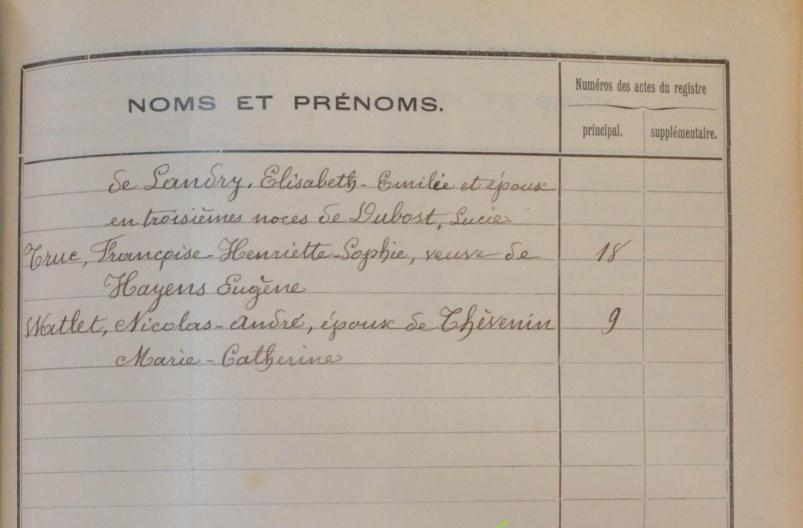 NOMS ET PRÉNOMS.
Numéros des actes du registre
principal. supplémentaire.
de Landry, Elisabeth-Emilie et époux
en troisièmes noces de Dubost, Lucie
Truc, Françoise-Henriette-Sophie, veuve de 18
Hayens Eugène
Watlet, Nicolas-André, époux de Thèvenin 9
Marie-Catherine